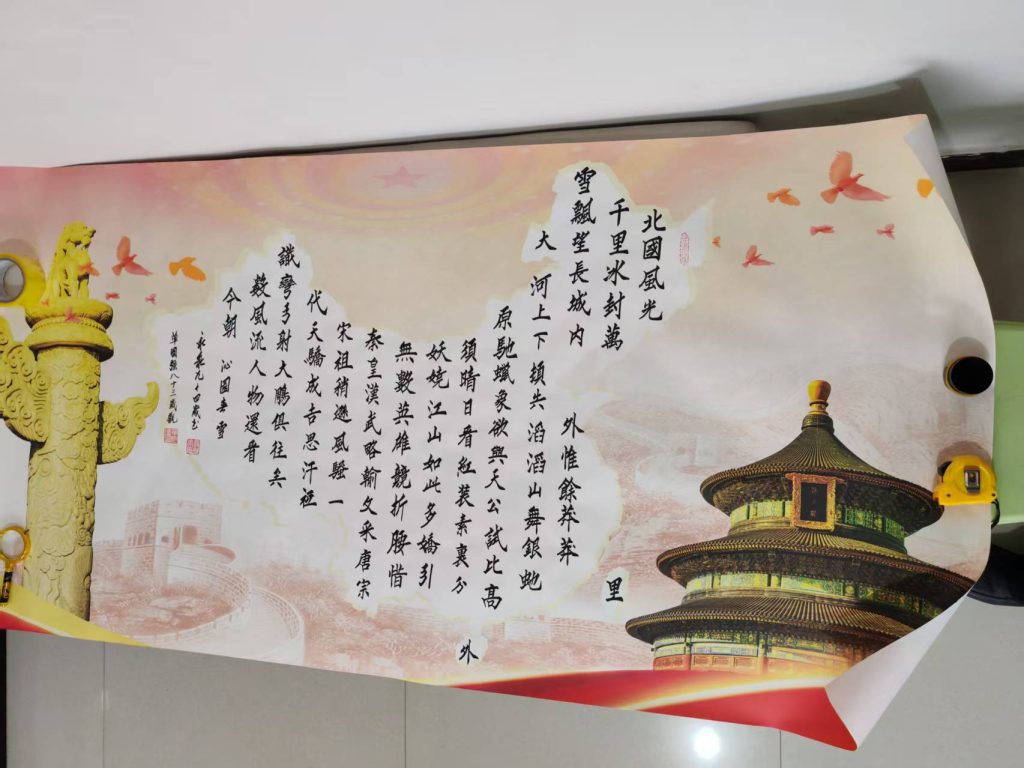 北國風光
千里冰封萬
里
雪飄望長城内
外惟餘莽莽
大河上下頓失滔滔山舞銀虵
原馳蠟象欲與天公試比高
須晴日看紅装素裹分
外
妖娆江山如此多嬌引
無數英雄競折腰惜
秦皇漢武略輸文采唐宗
宋祖稍遜風騷一
代天驕成吉思汗衹
識彎弓射大鵰俱往矣
數風流人物還看
今朝 沁園春雪
九十四歲書
單國強八十三歲觀